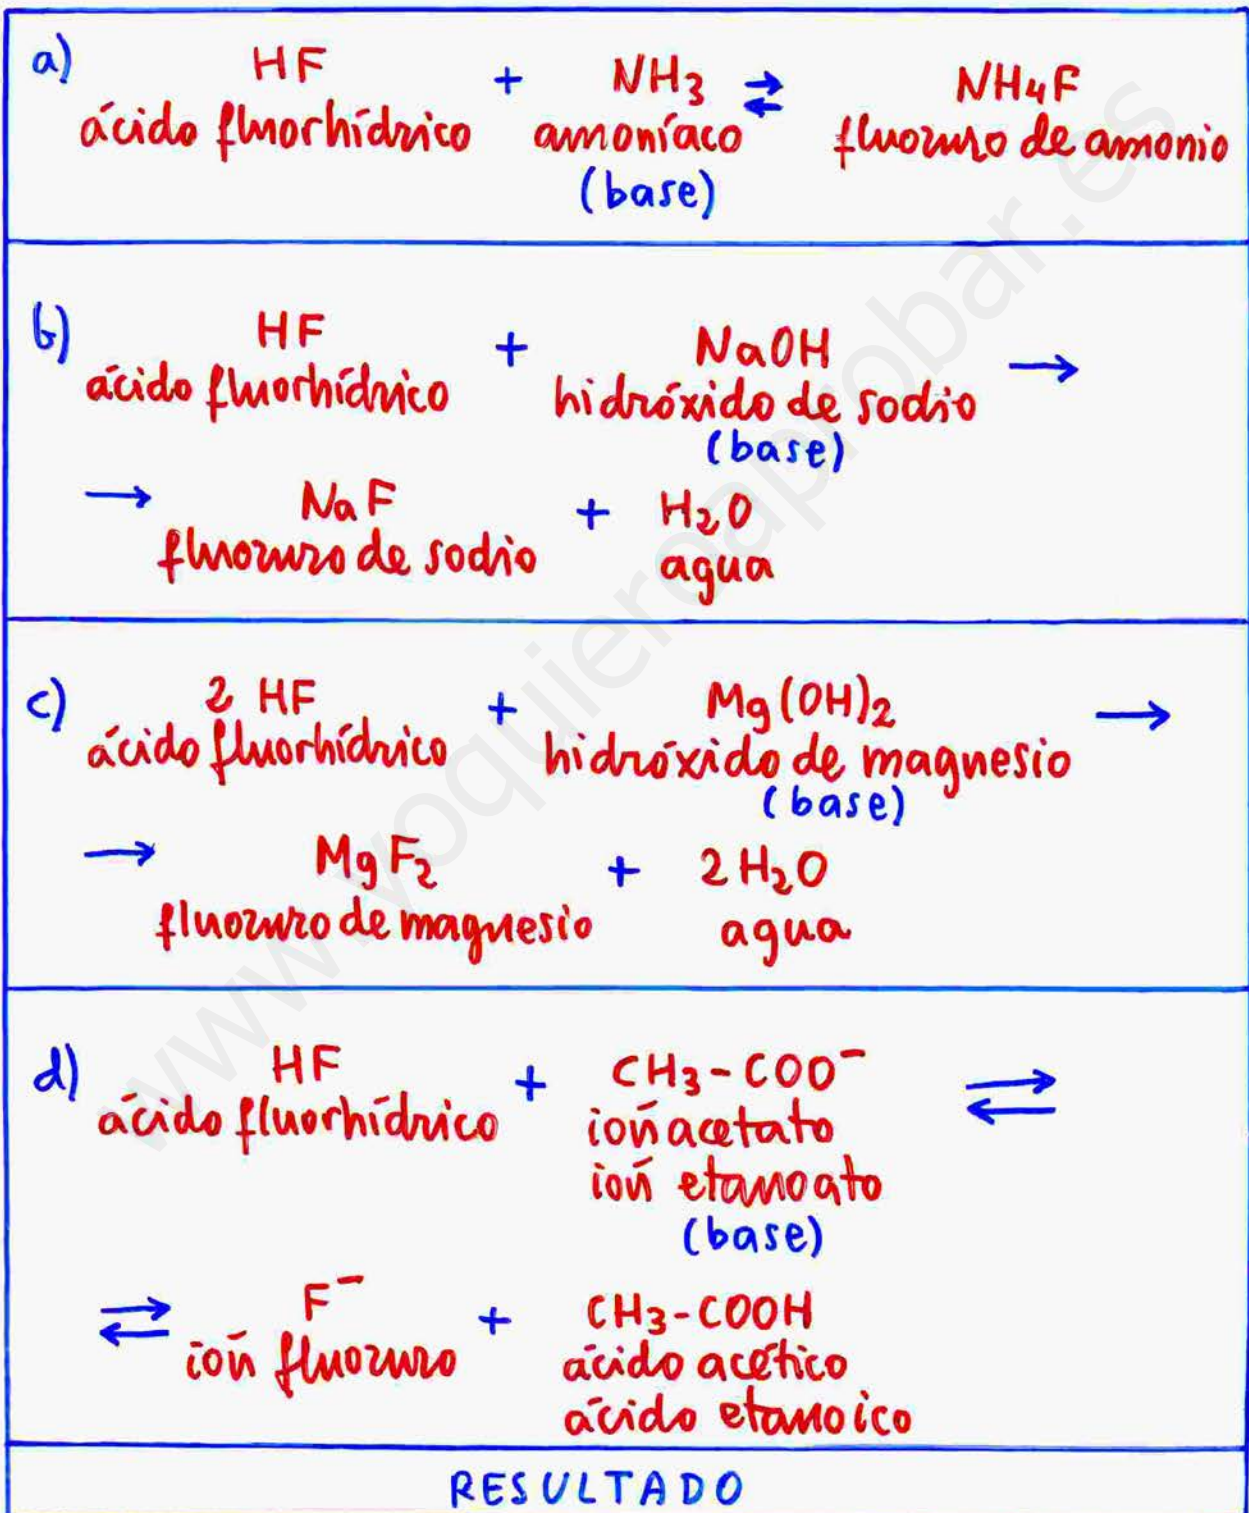 a) HF + NH₃ ⇄ NH₄F
ácido fluorhídrico amoníaco fluoruro de amonio
(base)
b) HF + NaOH →
ácido fluorhídrico hidróxido de sodio
(base)
→ NaF + H₂O
fluoruro de sodio agua
c) 2 HF + Mg(OH)₂ →
ácido fluorhídrico hidróxido de magnesio
(base)
→ MgF₂ + 2H₂O
fluoruro de magnesio agua
d) HF + CH₃-COO⁻ ⇄
ácido fluorhídrico ión acetato
ión etanoato
(base)
⇄ F⁻ + CH₃-COOH
ión fluoruro ácido acético
ácido etanoico
RESULTADO
www.yoquieroaprobar.es